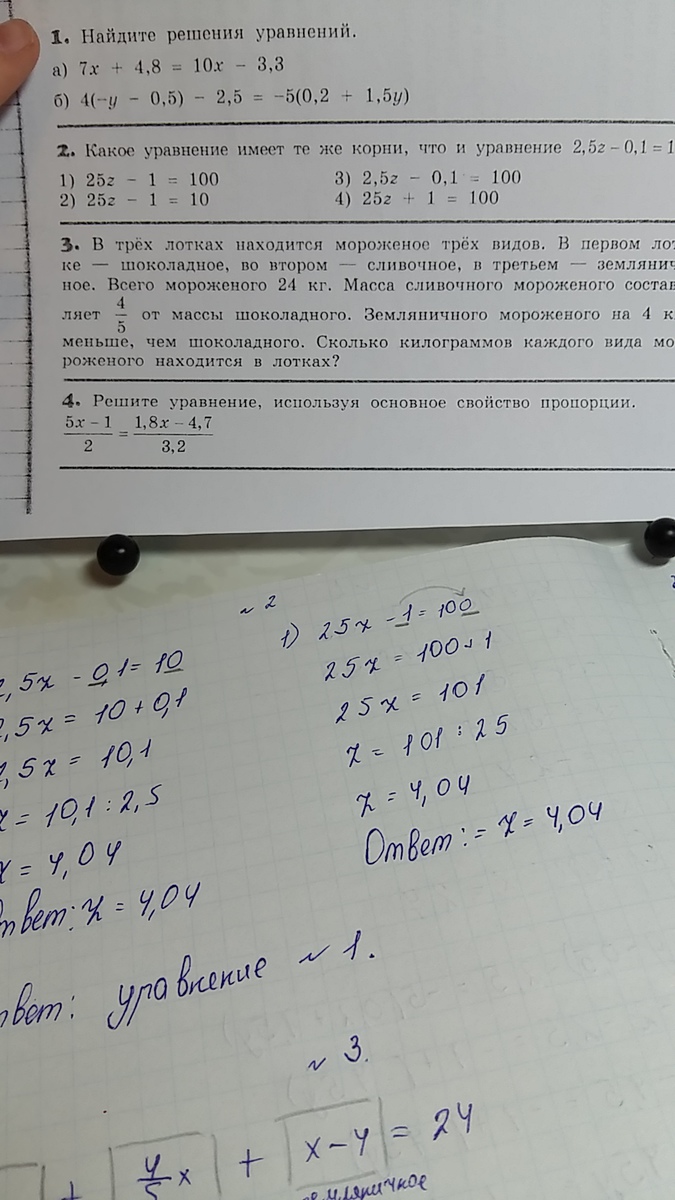 1. Найдите решения уравнений.
а) 7x + 4,8 = 10x − 3,3
б) 4(−y − 0,5) − 2,5 = −5(0,2 + 1,5y)
2. Какое уравнение имеет те же корни, что и уравнение 2,5z − 0,1 = 1
1) 25z − 1 = 100
2) 25z − 1 = 10
3) 2,5z − 0,1 = 100
4) 25z + 1 = 100
3. В трёх лотках находится мороженое трёх видов. В первом лот
ке — шоколадное, во втором — сливочное, в третьем — землянич
ное. Всего мороженого 24 кг. Масса сливочного мороженого состав
ляет 4/5 от массы шоколадного. Земляничного мороженого на 4 к
меньше, чем шоколадного. Сколько килограммов каждого вида мо
роженого находится в лотках?
4. Решите уравнение, используя основное свойство пропорции.
(5x − 1)/2 = (1,8x − 4,7)/3,2
~ 2
,5z − 0,1 = 10
,5z = 10 + 0,1
,5z = 10,1
z = 10,1 : 2,5
z = 4,04
твет: z = 4,04
1) 25z − 1 = 100
25z = 100 + 1
25z = 101
z = 101 : 25
z = 4,04
Ответ: = z = 4,04
твет: уравнение ~ 1.
~ 3.
+ 4/5 x + x − 4 = 24
земляничное